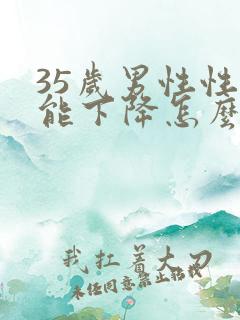 35歲男性性
能下降怎麼
我扛着大刀
未经同意禁止转载